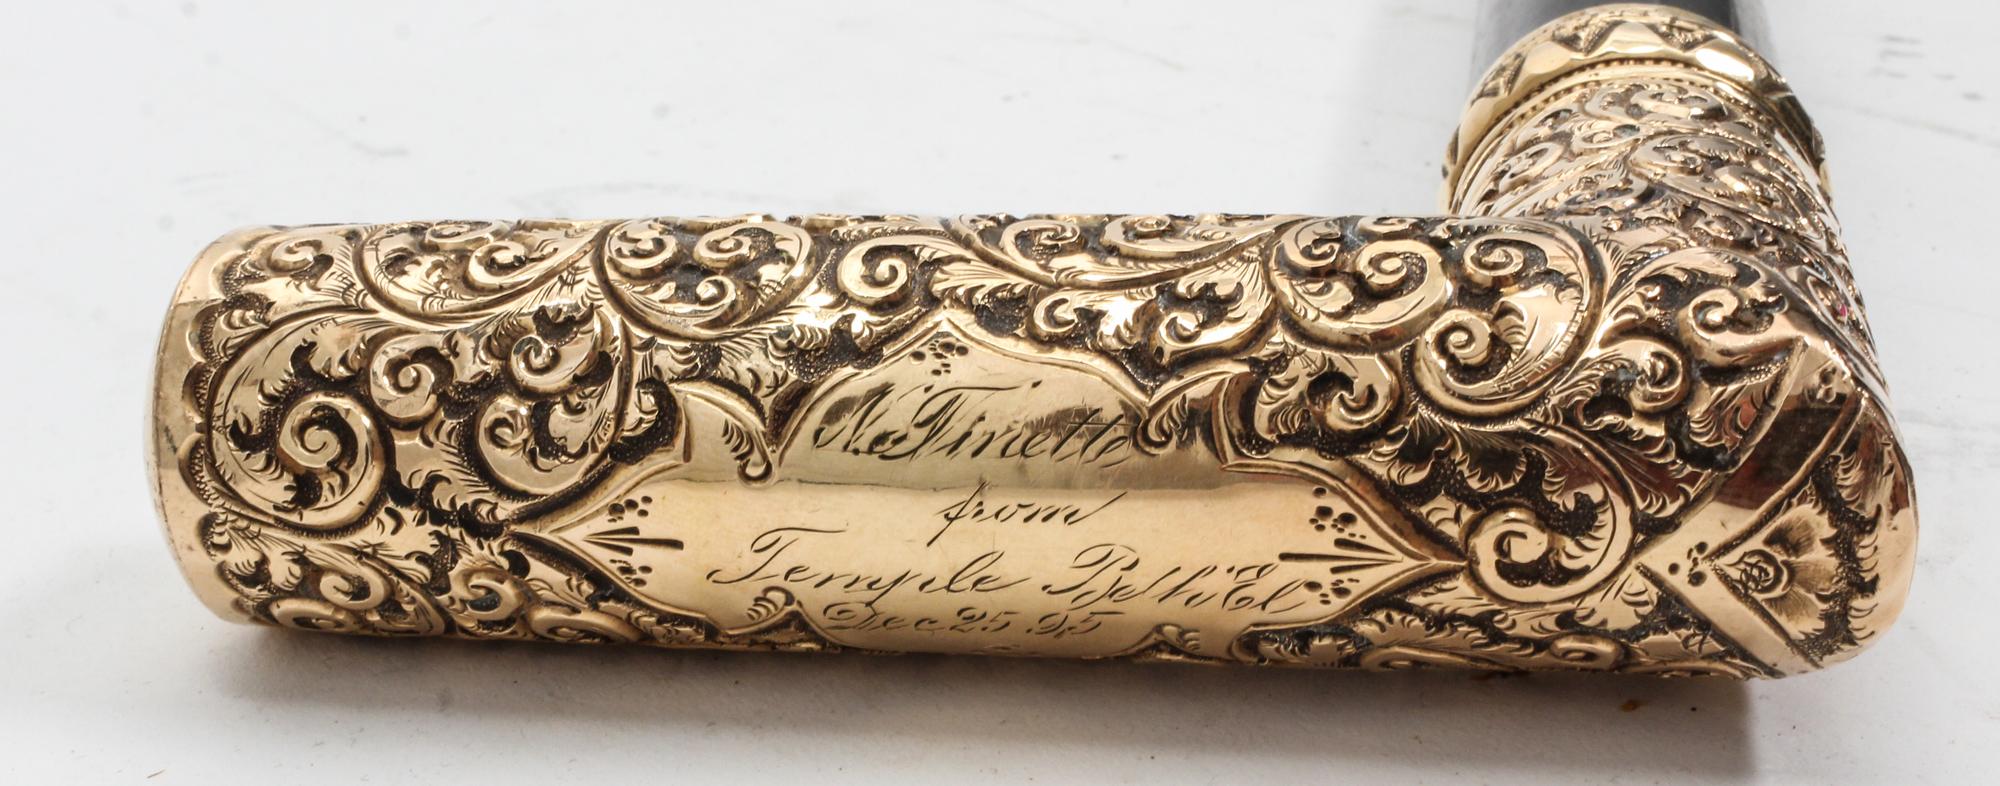 N. Finette
from
Temple Beth El
Dec 25 95